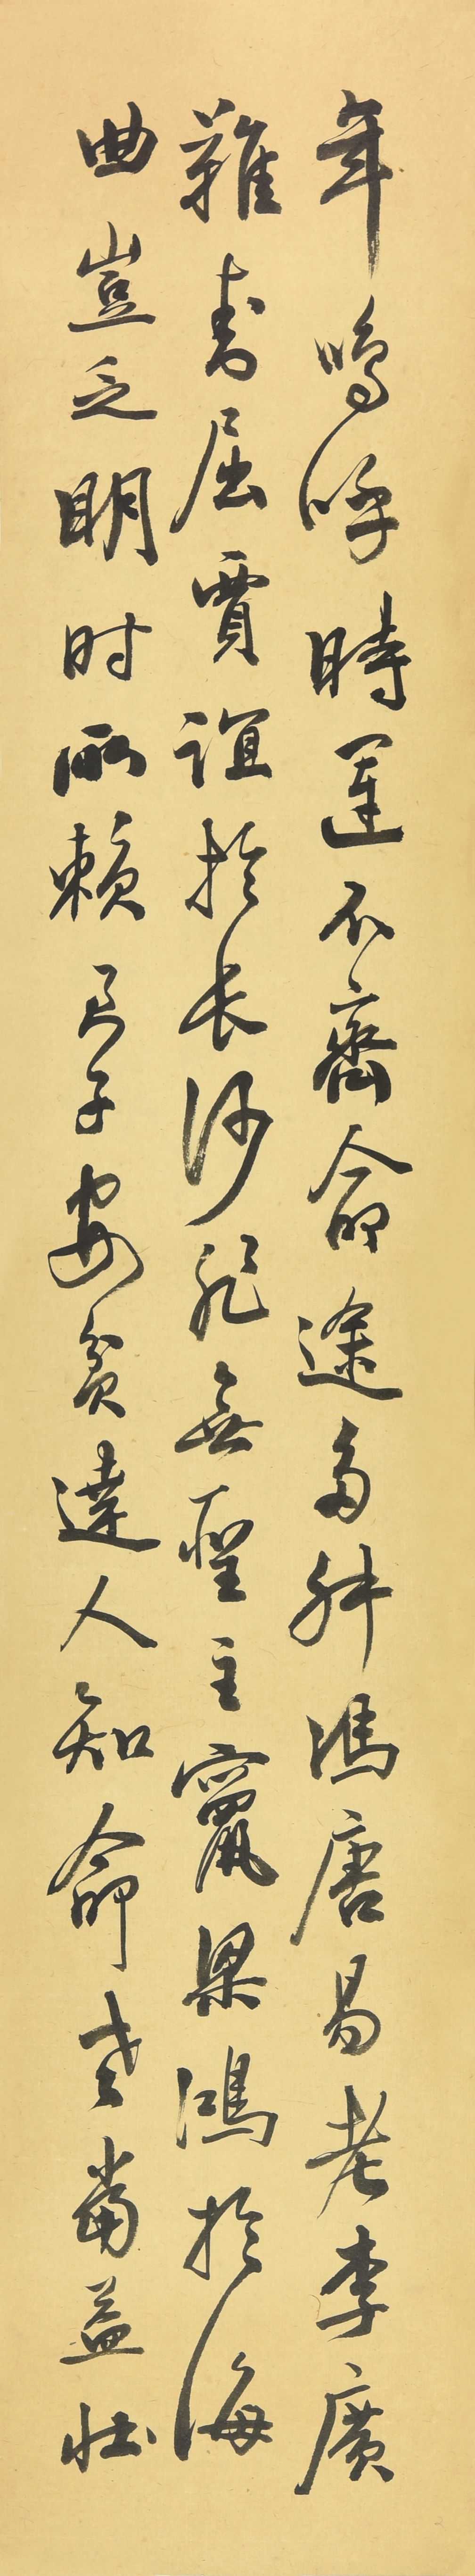 年嗚呼時運不齊命途多舛馮唐易老李廣
難封屈賈誼於長沙非無聖主竄梁鴻於海
曲豈乏明时所賴君子安貧達人知命老當益壯